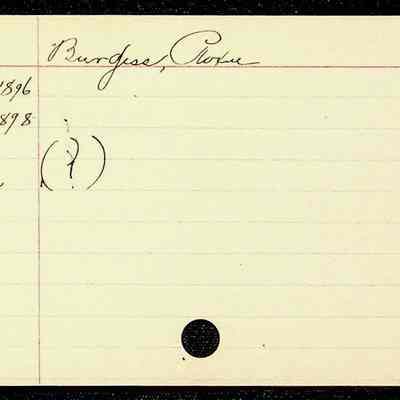 Burgess, Roxie
1896
1898
(?)